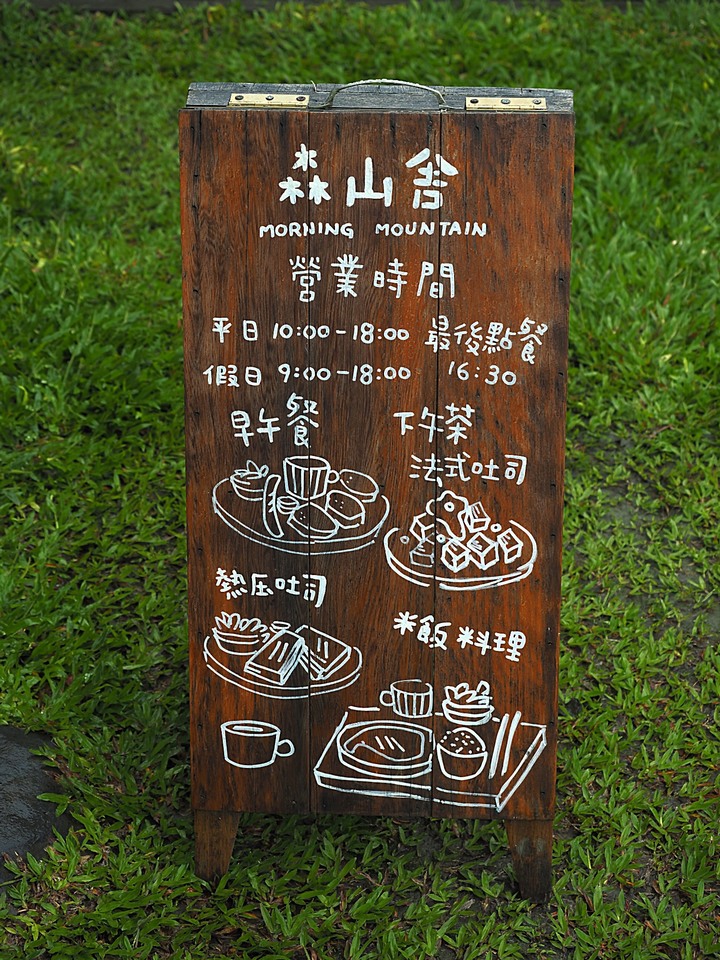 森山舍
MORNING MOUNTAIN
營業時間
平日 10:00-18:00 最後點餐
假日 9:00-18:00 16:30
早午餐
下午茶
法式吐司
熱压吐司
米飯料理